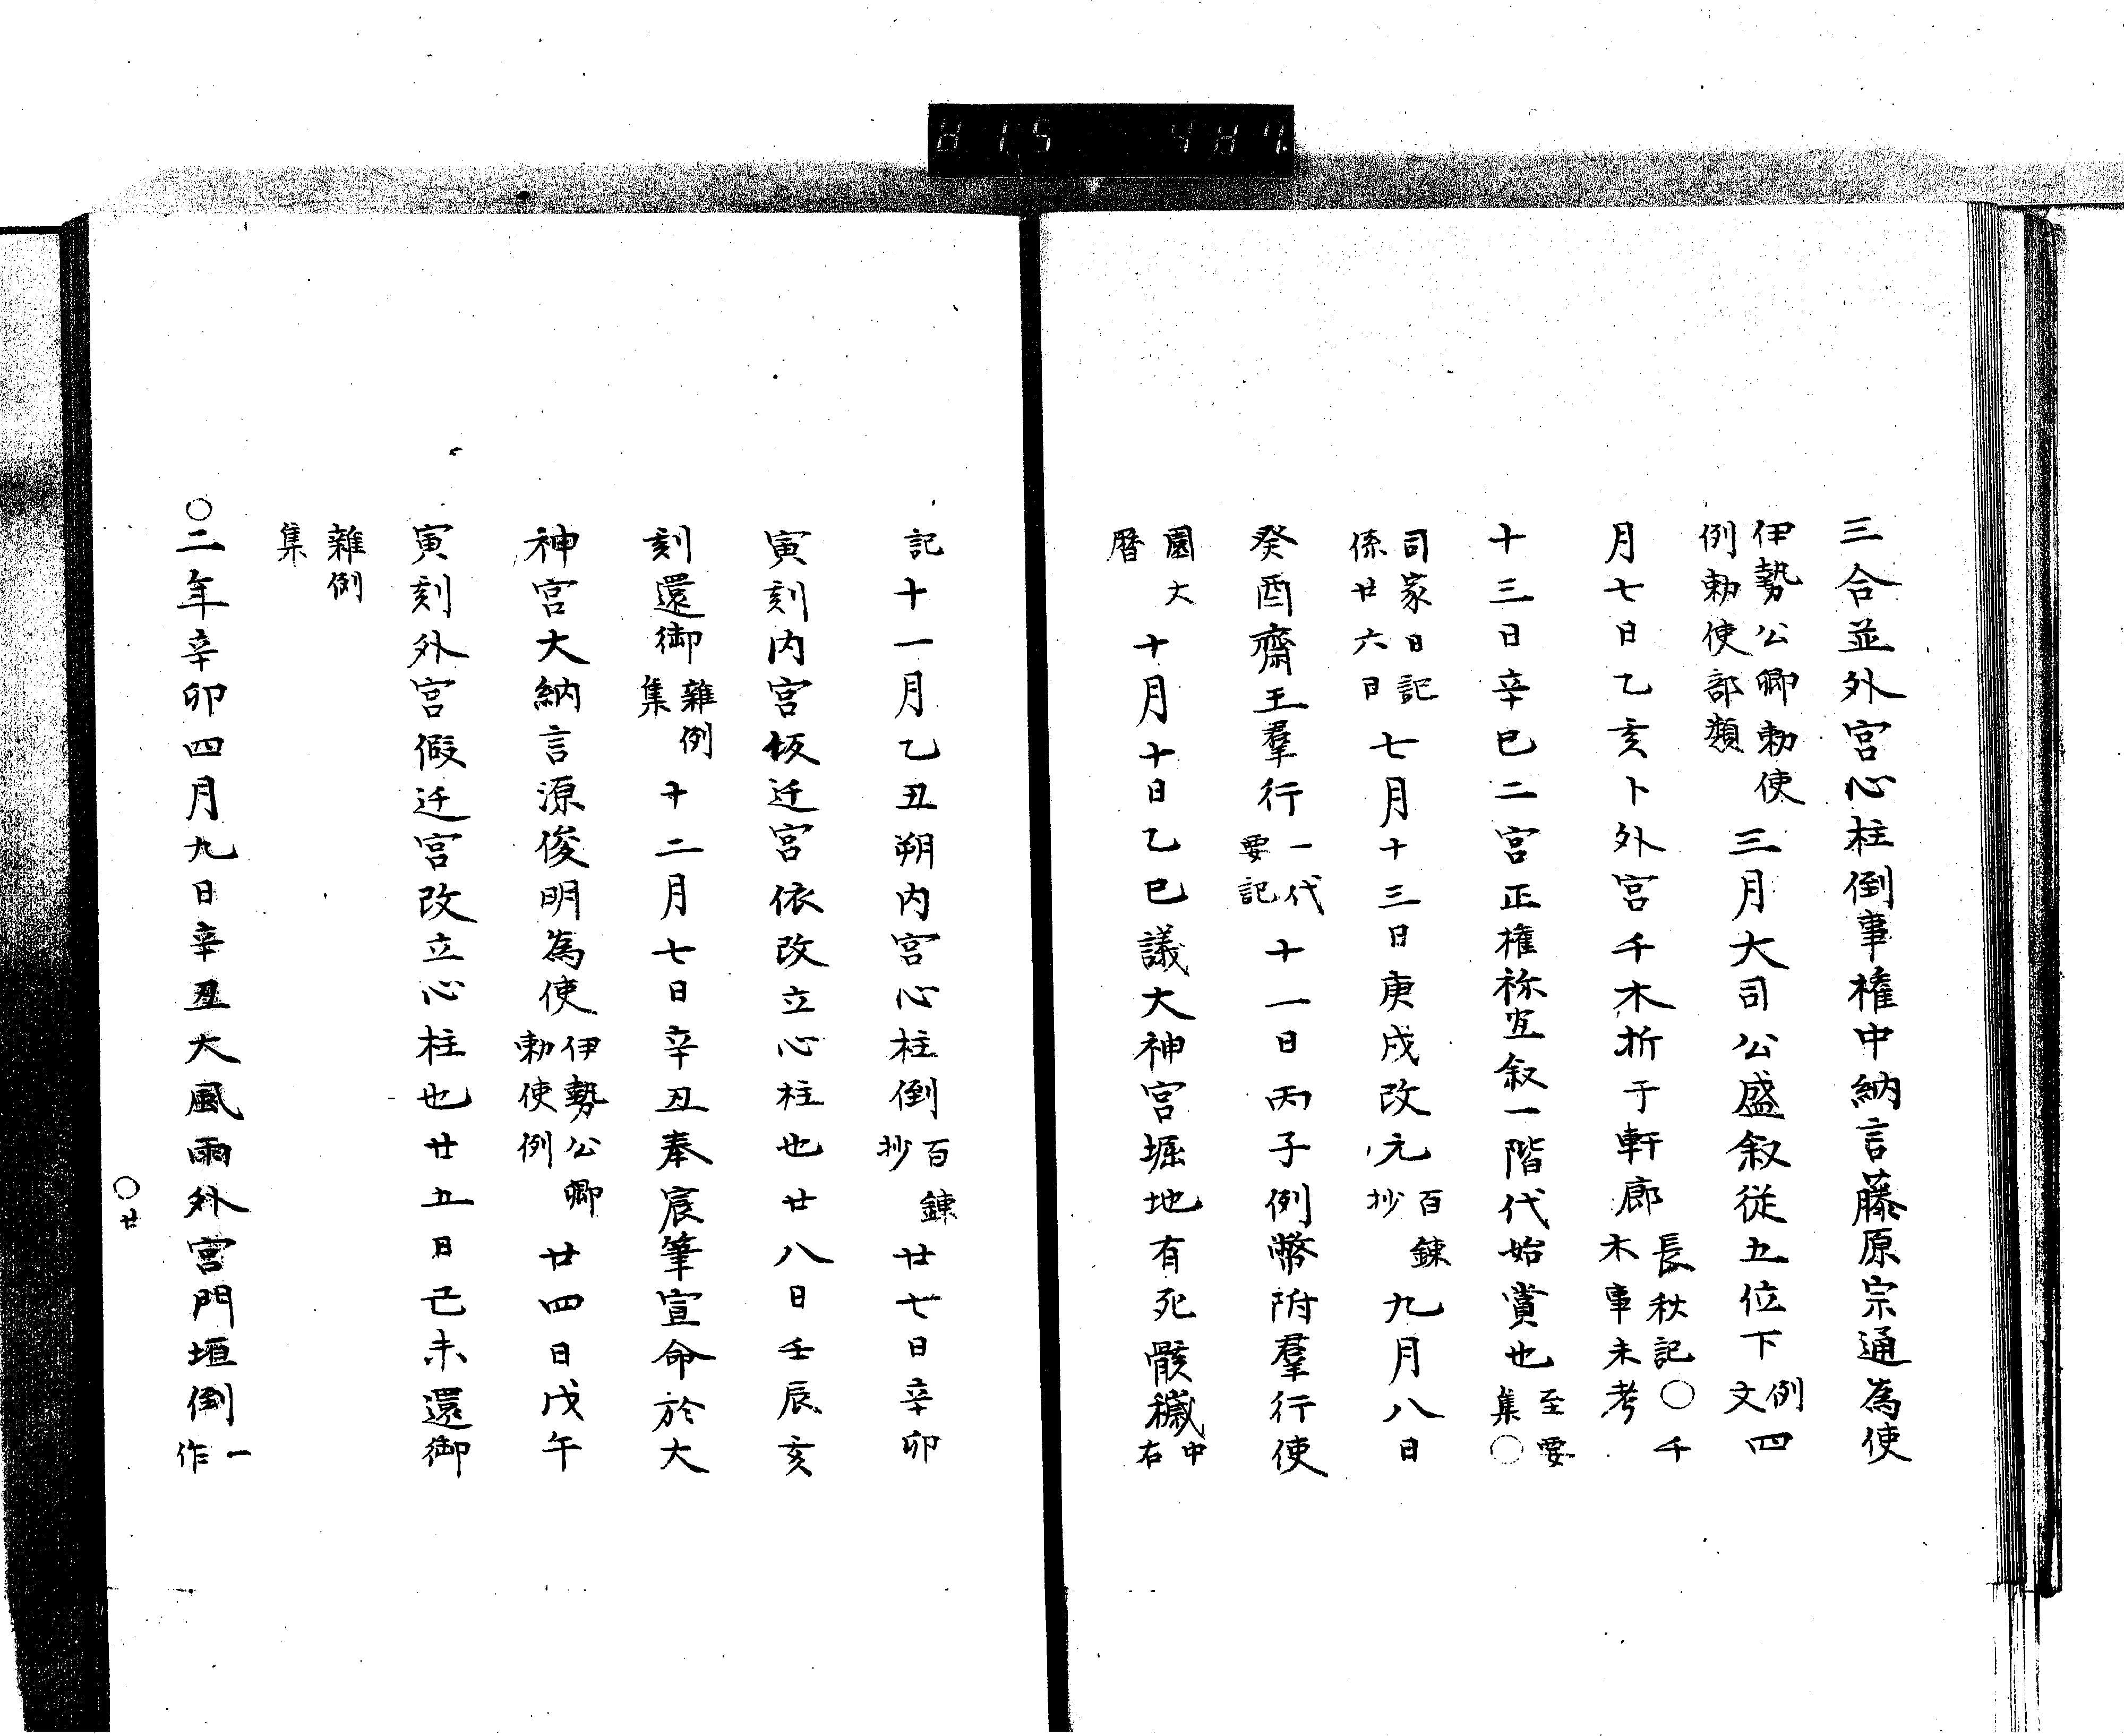 815 487
三合並外宮心柱倒事権中納言藤原宗通為使
伊勢公卿勅使例勅使部類三月大司公盛叙従五位下例文四
月七日乙亥卜外宮千木折于軒廊長秋記〇千木事未考
十三日辛巳二宮正権祢宜叙一階代始賞也至要集〇
司家日記係廿六日七月十三日庚戌改元百錬抄九月八日
癸酉齋王羣行一代要記十一日丙子例幣附羣行使中右
園大暦十月十日乙巳議大神宮堀地有死骸穢
記十一月乙丑朔内宮心柱倒百錬抄廿七日辛卯
寅刻内宮仮迁宮依改立心柱也廿八日壬辰亥
刻還御雜例集十二月七日辛丑奉宸筆宣命於大
神宮大納言源俊明為使伊勢公卿勅使例廿四日戊午
寅刻外宮假迁宮改立心柱也廿五日己未還御
雜例集
〇二年辛卯四月九日辛丑大風雨外宮門垣倒一作
〇廿